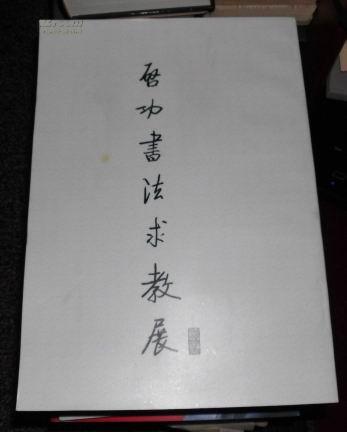 啓功書法求教展